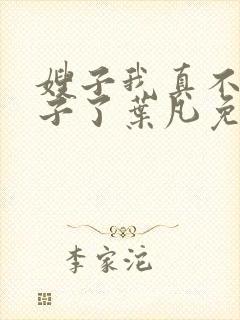 嫂子我真不
子了葉凡免
李家沱